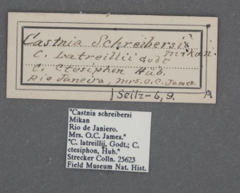 Castnia Schreibersii
Mikan.
C. Latreillii Godt
C. Ctesiphon Hub.
Rio Janeiro, Mrs. O.C. James.
Seitz-6, 9.
"Castnia schreibersi
Mikan
Rio de Janiero.
Mrs. O.C. James."
"C. latreillii, Godt.; C.
ctesiphon, Hub."
Strecker Colln. 25623
Field Museum Nat. Hist.